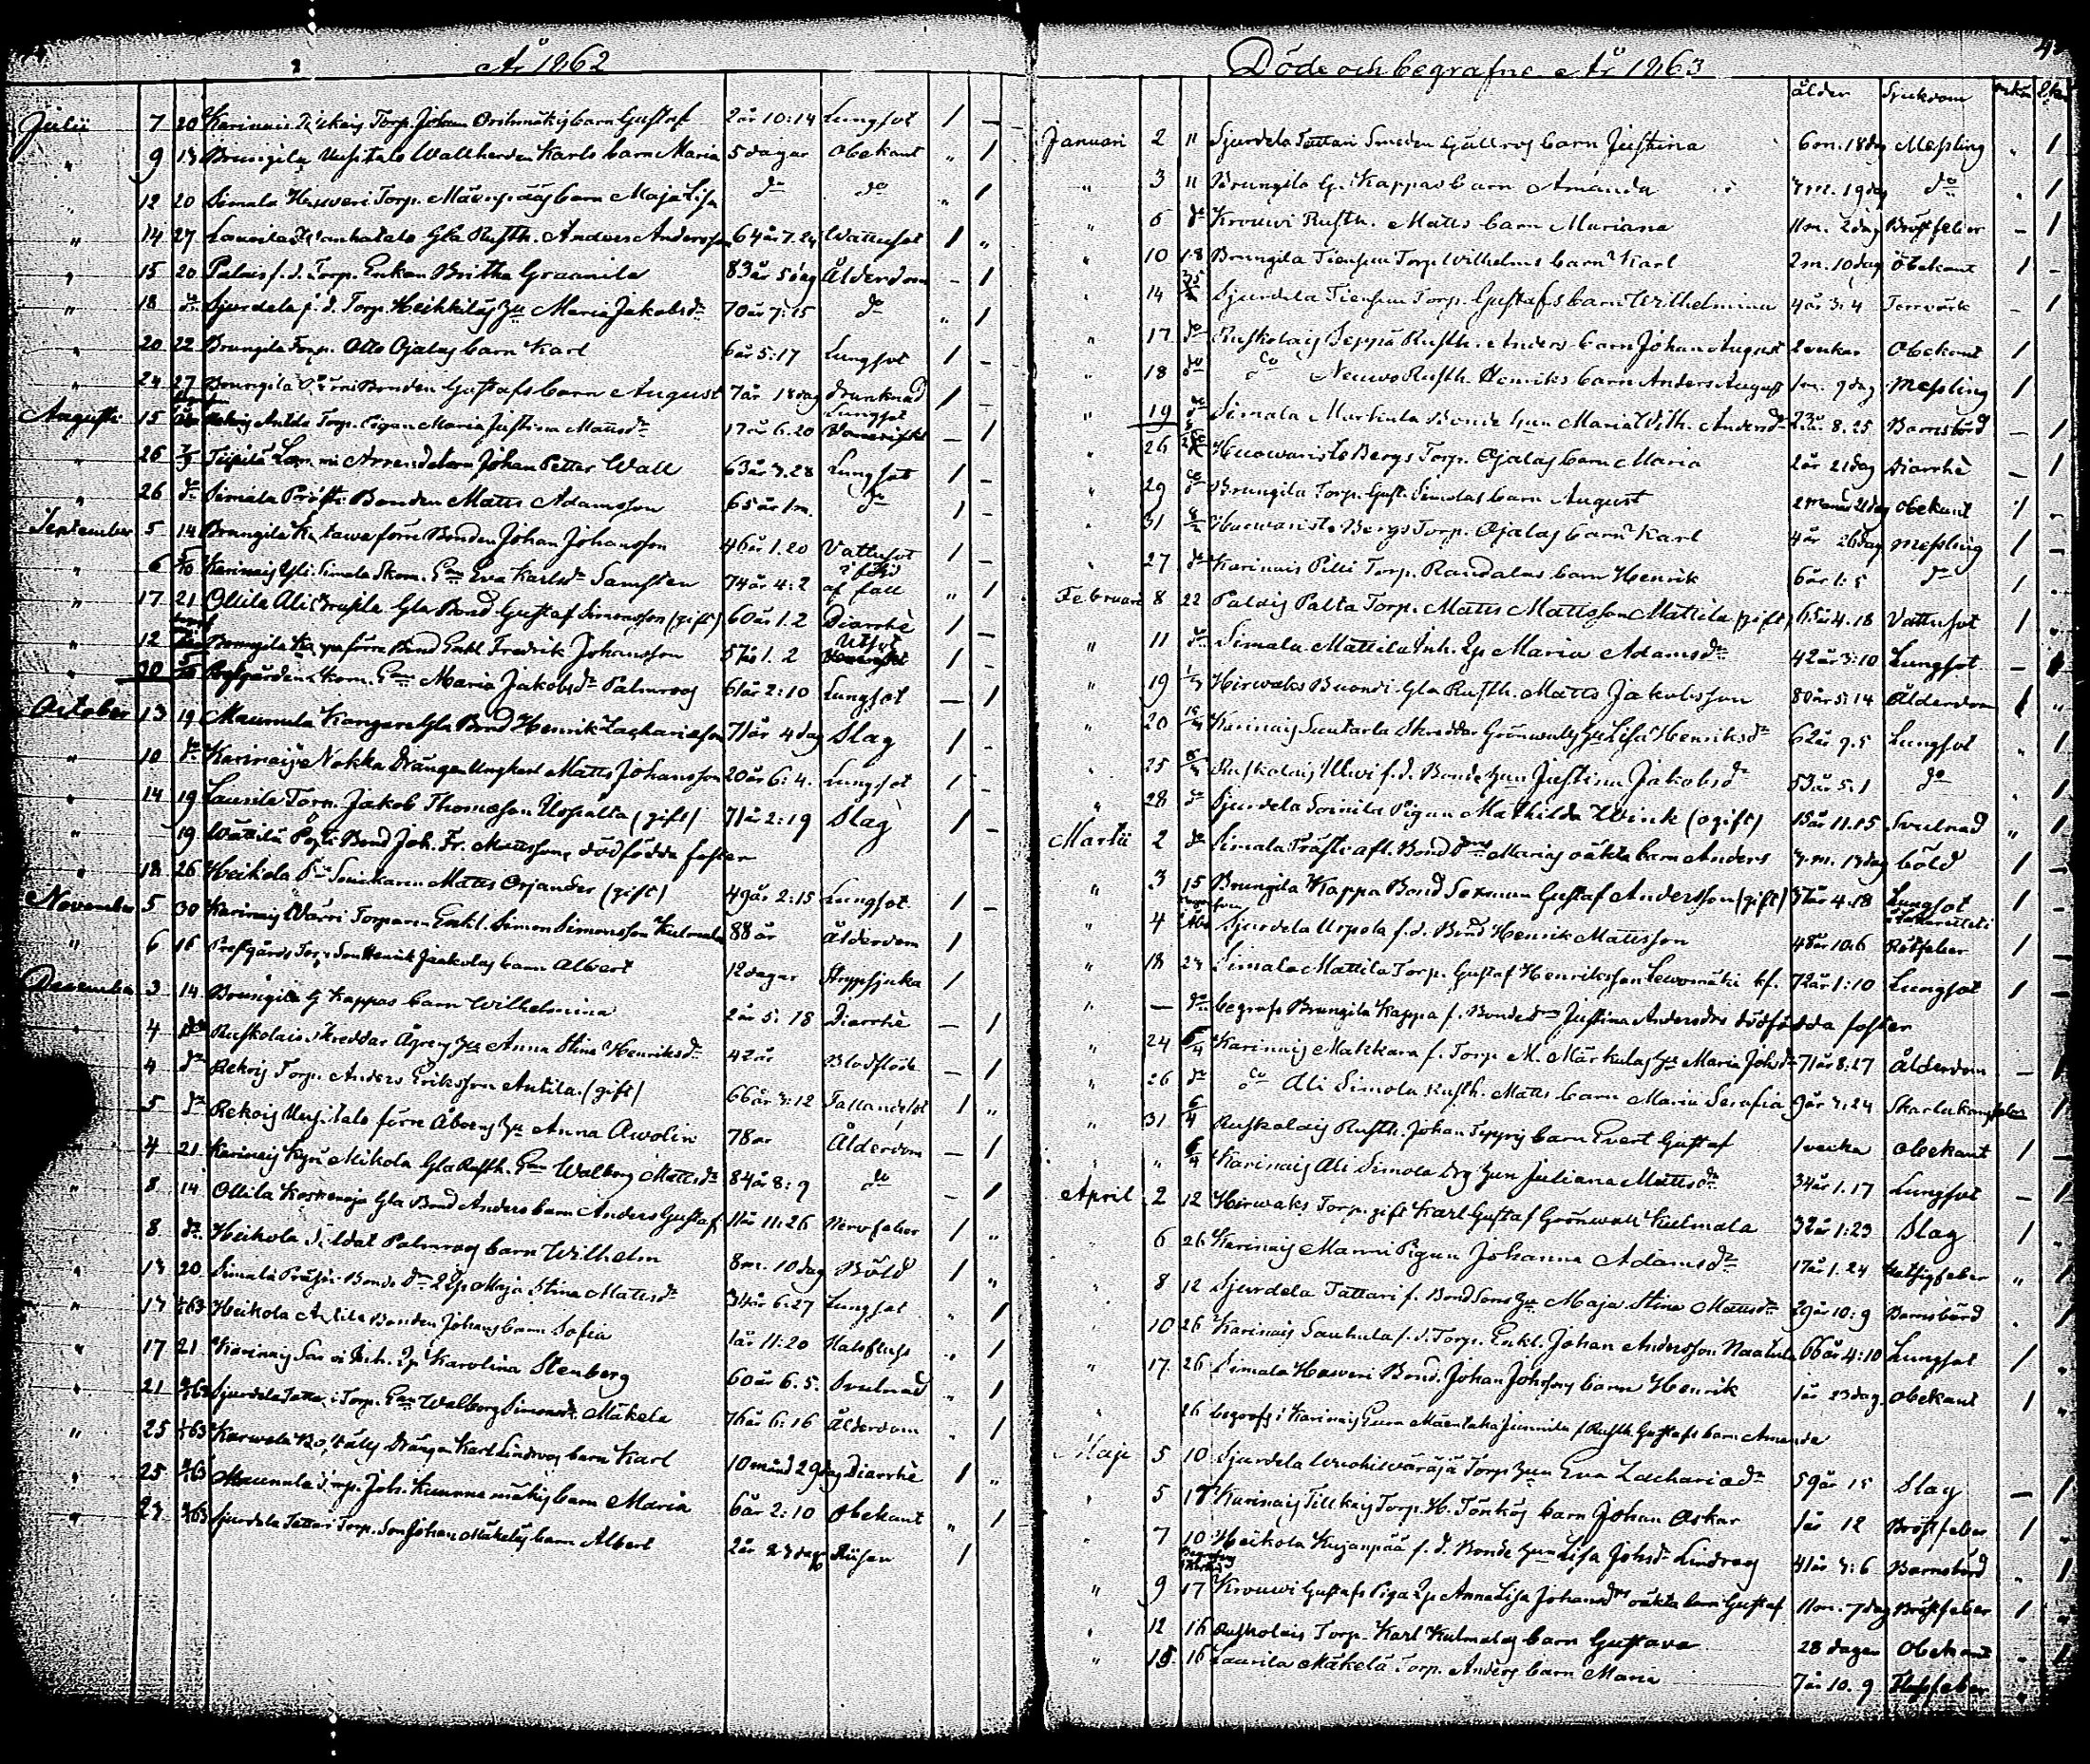 År 1862
Julii 7 20 Karinais Torp. Johan barn Gustaf 2 år 10:14 Lungsot 1 –
" 9 13 Brungila Uusitalo Wallherden Karls barn Maria 5 dagar Obekant " 1
" 12 20 Simala Torp. barn Maja Lisa do do " 1
" 14 27 Gla Rusth. Anders Andersson 64 år 7.24 Wattusot 1 "
" 15 20 Palus f.d. Torp. Enkan Britha Graanila 83 år 5 dag Ålderdom – 1
" 18 do Sjurdela f.d. Torp. Heikkiläs Hu Maria Jakobsdr 70 år 7:15 do " 1
" 20 22 Brungila Torp. Otto Ojalas barn Karl 6 år 5:17 Lungsot 1 –
" 24 27 Brungila Bonden Gustafs barn August 7 år 18 dag drunknad 1 –
Augusti 15 Anttila Torp. Pigan Maria Justina Mattsdr 17 år 6.20 Lungsot – 1
" 26 Arrendatorn Johan Petter Wall 63 år 3.28 Lungsot 1 –
" 26 do Simala Prosti Bonden Matts Adamsson 65 år 1 m. do 1 –
September 5 14 Brungila förre Bonden Johan Johansson 46 år 1.20 Vattusot 1 –
" 6 5/10 Karinais Yli Simala Skom. Eva Karlsdr Samsten 74 år 4:2 i följd af fall " 1
" 17 21 Ollila Ali Gla Bond Gustaf Simonsson (gift) 60 år 1.2 Diarrhè 1 –
" 12 Brungila förre Bond Enkl Fredrik Johansson 57 år 1.2 Utsot 1 –
" 30 Skom. Maria Jakobsdr Palmroos 61 år 2:10 Lungsot – 1
October 13 19 Maunula Kangars Gla Bond Henrik Zachariasson 71 år 4 dag Slag 1 –
" 10 do Karinais Nokka Drängen Ungkarl Matts Johansson 20 år 6:4. Lungsot 1 –
" 14 19 Laurila Torp. Jakob Thomasson Uspalta (gift) 71 år 2:19 Slag 1 –
" 19 Bond Joh. Fr. Mattssons dödfödda foster
" 18 26 Heikola Matts Orjander (gift) 49 år 2:15 Lungsot 1 –
November 5 30 Karinais Wärri Torparen Enkl. Simon Simonsson Kulmala 88 år Ålderdom 1
" 6 16 Prestgårds Torp. Son Henrik Jaakolas barn Albert 12 dagar Strypsjuka 1
December 3 14 Brungila G Kappas barn Wilhelmina 2 år 5:18 Diarrhè – 1
" 4 do Ruskolais Skreddar Ågrens Hu Anna Stina Henriksdr 42 år Blodflöde – 1
4 do Rekois Torp. Anders Eriksson Antila (gift) 66 år 3:12 Fallandesot 1 "
5 do Rekois Uusitalo förre Åboens Hu Anna Awolin 78 år Ålderdom – 1
4 21 Karinais Kyrö Mikola Gla Rusth. Walborg Mattsdr 84 år 8:9 do – 1
" 8 14 Ollila Koskenoja Gla Bond Anders barn Anders Gustaf 11 år 11:26 Nervfeber 1 "
8 do Heikola Soldat Palmroos barn Wilhelm 8 m. 10 dag Böld 1 "
" 13 20 Simala Bonde Maja Stina Mattsdr 34 år 6:27 Lungsot " 1
" 17 Heikola Anttila Bonden Johans barn Sofia 1 år 11:20 Halsfluss " 1
" 17 21 Karinais Inh. Karolina Stenberg 60 år 6.5. Svulnad " 1
" 21 Sjurdela Tattari Torp. Walborg Simonsdr Mäkelä 76 år 6:16 Ålderdom " 1
" 25 Karwela Drängen Karl Lindroos barn Karl 10 månd 29 dag Diarrhè 1 "
" 25 Maunula Torp. Joh. Kuummamäkis barn Maria 6 år 2:10 Obekant " 1
" 27 Sjurdela Tattari Torp. Son Johan Mäkeläs barn Albert 2 år 23 dag Riisen 1
Döde och begrafne År 1863
ålder Sjukdom
Januari 2 11 Sjurdela Tattari Smeden Gällros barn Justina 6 m. 18 dag Messling " 1
" 3 11 Brungila G. Kappas barn Amanda 7 m. 19 dag do " 1
" 5 do Krouwi Rusth. Matts barn Mariana 11 m. 2 dag Bröstfeber – 1
" 10 18 Brungila Tiensuu Torp. Wilhelms barn Karl 2 m. 10 dag Obekant 1 –
" 14 Sjurdela Tiensuu Torp. Gustafs barn Wilhelmina 4 år 3.4 Torrvärk – 1
" 17 do Ruskolais Seppä Rusth. Anders barn Johan August 2 veckor Obekant 1
" 18 do do Neuwo Rusth. Henriks barn Anders August 1 m. 9 dag Messling 1
" 19 do Simala Markula Bonde Hun Maria Wilh. Andersdr 23 år 8.25 Barnsbörd – 1
" 26 Huowaristo Bergs Torp. Ojalas barn Maria 2 år 21 dag Diarrhè – 1
" 29 do Brungila Torp. Gust. Simolas barn August 2 månad 21 dag obekant 1 –
" 31 Huowaristo Bergs Torp. Ojalas barn Karl 4 år 26 dag Messling 1 –
27 do Karinais Pilli Torp. Randalas barn Henrik 6 år 1:5 do 1 –
Februari 8 22 Palais Palta Torp. Matts Mattsson Mattila (gift) 65 år 4.18 Vattusot 1 "
" 11 do Simala Mattila Inh. Maria Adamsdr 42 år 3:10 Lungsot – 1
" 19 Hirwaks Buondi Gla Rusth. Matts Jakobsson 80 år 5:14 Ålderdom 1 "
" 20 Karinais Suutarla Skreddar Grönwalls Hu Lisa Henriksdr 62 år 9.5 Lungsot " 1
" 25 Ruskolais Ulwi f.d. Bonde Hun Justina Jakobsdr 53 år 5.1 do " 1
" 28 do Sjurdela Soinila Pigan Mathilda Wink (ogift) 15 år 11.15 Svulnad " 1
Martii 2 do Simala Prosti afl. Bond Marias oäkta barn Anders 3 m. 13 dag böld 1 –
" 3 15 Brungila Kappa Bond Sexman Gustaf Andersson (gift) 37 år 4.18 Lungsot 1 –
" 4 Sjurdela Urpola f.d. Bond Henrik Mattsson 48 år 10.6 Rötfeber 1 –
" 18 Simala Mattila Torp. Gustaf Henriksson Lewomäki 72 år 1:10 Lungsot 1 –
" – do begrafs Brungila Kappa f. Bonde Justina Andersdrs dödfödda foster
" 24 6/4 Karinais Makkara f. Torp. M. Märkulas Hu Maria Johsdr 71 år 8:27 Ålderdom – 1
" 26 do do Ali Simola Rusth. Matts barn Maria Serafia 9 år 3.24 Skarlakansfeber 1
" 31 6/4 Ruskolais Rusth. Johan barn Evert Gustaf 1 vecka obekant 1 –
" 6/4 Karinais Ali Simola Drg Hun Juliana Mattsdr 34 år 1.17 Lungsot – 1
April 2 12 Hirwaks Torp. gift Karl Gustaf Grönwall Kulmala 32 år 1:23 Slag 1 "
6 26 Karinais Manni Pigan Johanna Adamsdr 17 år 1.24 Hetsigfeber " 1
" 8 12 Sjurdela Tattari f. Bond Sons Hu Maja Stina Mattsdr 29 år 10:9 Barnsbörd " 1
10 26 Karinais Sauhula f.d. Torp. Enkl. Johan Andersson 66 år 4:10 Lungsot 1 "
" 17 26 Simala Haweri Bond. Johan Johssons barn Henrik 1 år 23 dag obekant 1 "
" 26 begrofs i Karinais Rusth. Gustafs barn Amanda
Maji 5 10 Sjurdela Torp Hun Eva Zachariadr 59 år 15 Slag – 1
" 5 17 Karinais Tillkais Torp. H. Tönkös barn Johan Oskar 1 år 12 Bröstfeber 1 "
" 7 10 Heikola Kujanpää f.d. Bonde Hun Lisa Johsdr Lindroos 41 år 3:6 Barnsbörd " 1
" 9 17 Krouwi Gustafs Piga Anna Lisa Johansdrs oäkta barn Gustaf 11 m. 7 dag Bröstfeber 1 "
" 12 16 Ruskolais Torp. Karl Kulmalas barn Gustava 28 dagar Obekant " 1
" 15 16 Laurila Mäkelä Torp. Anders barn Maria 7 år 10.9